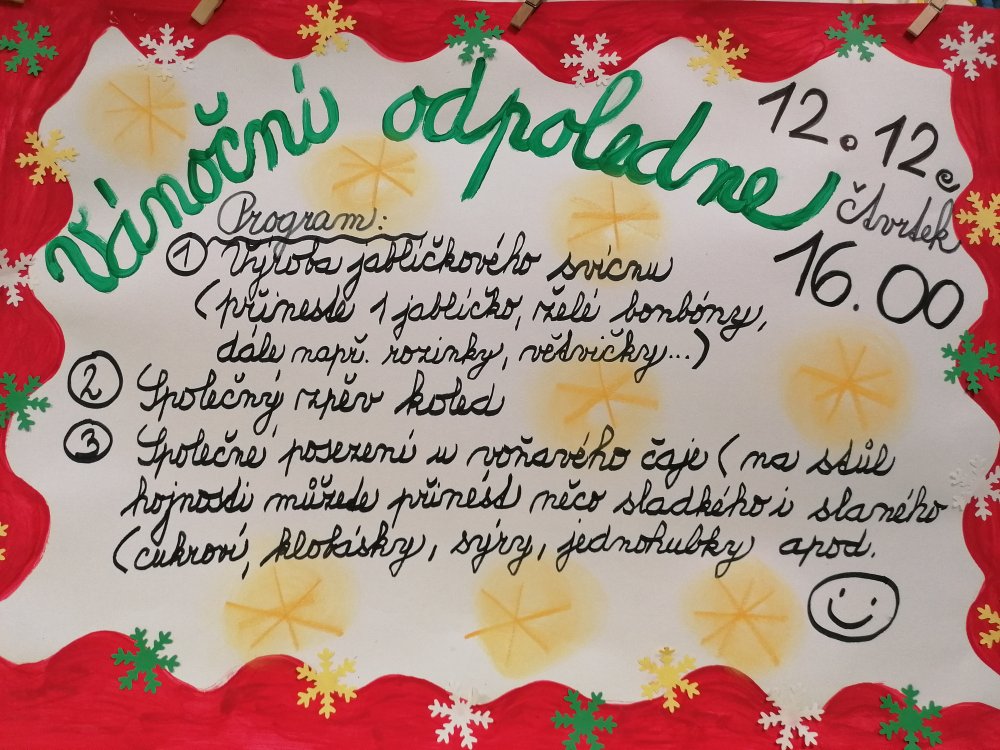 Vánoční odpoledne
12. 12.
čtvrtek
16.00
Program:
1 Výroba jablíčkového svícnu
(přineste 1 jablíčko, želé bonbóny,
dále např. rozinky, větvičky...)
2 Společný zpěv koled
3 Společné posezení u voňavého čaje (na stůl
hojnosti můžete přinést něco sladkého i slaného
(cukroví, klobásky, sýry, jednohubky apod.